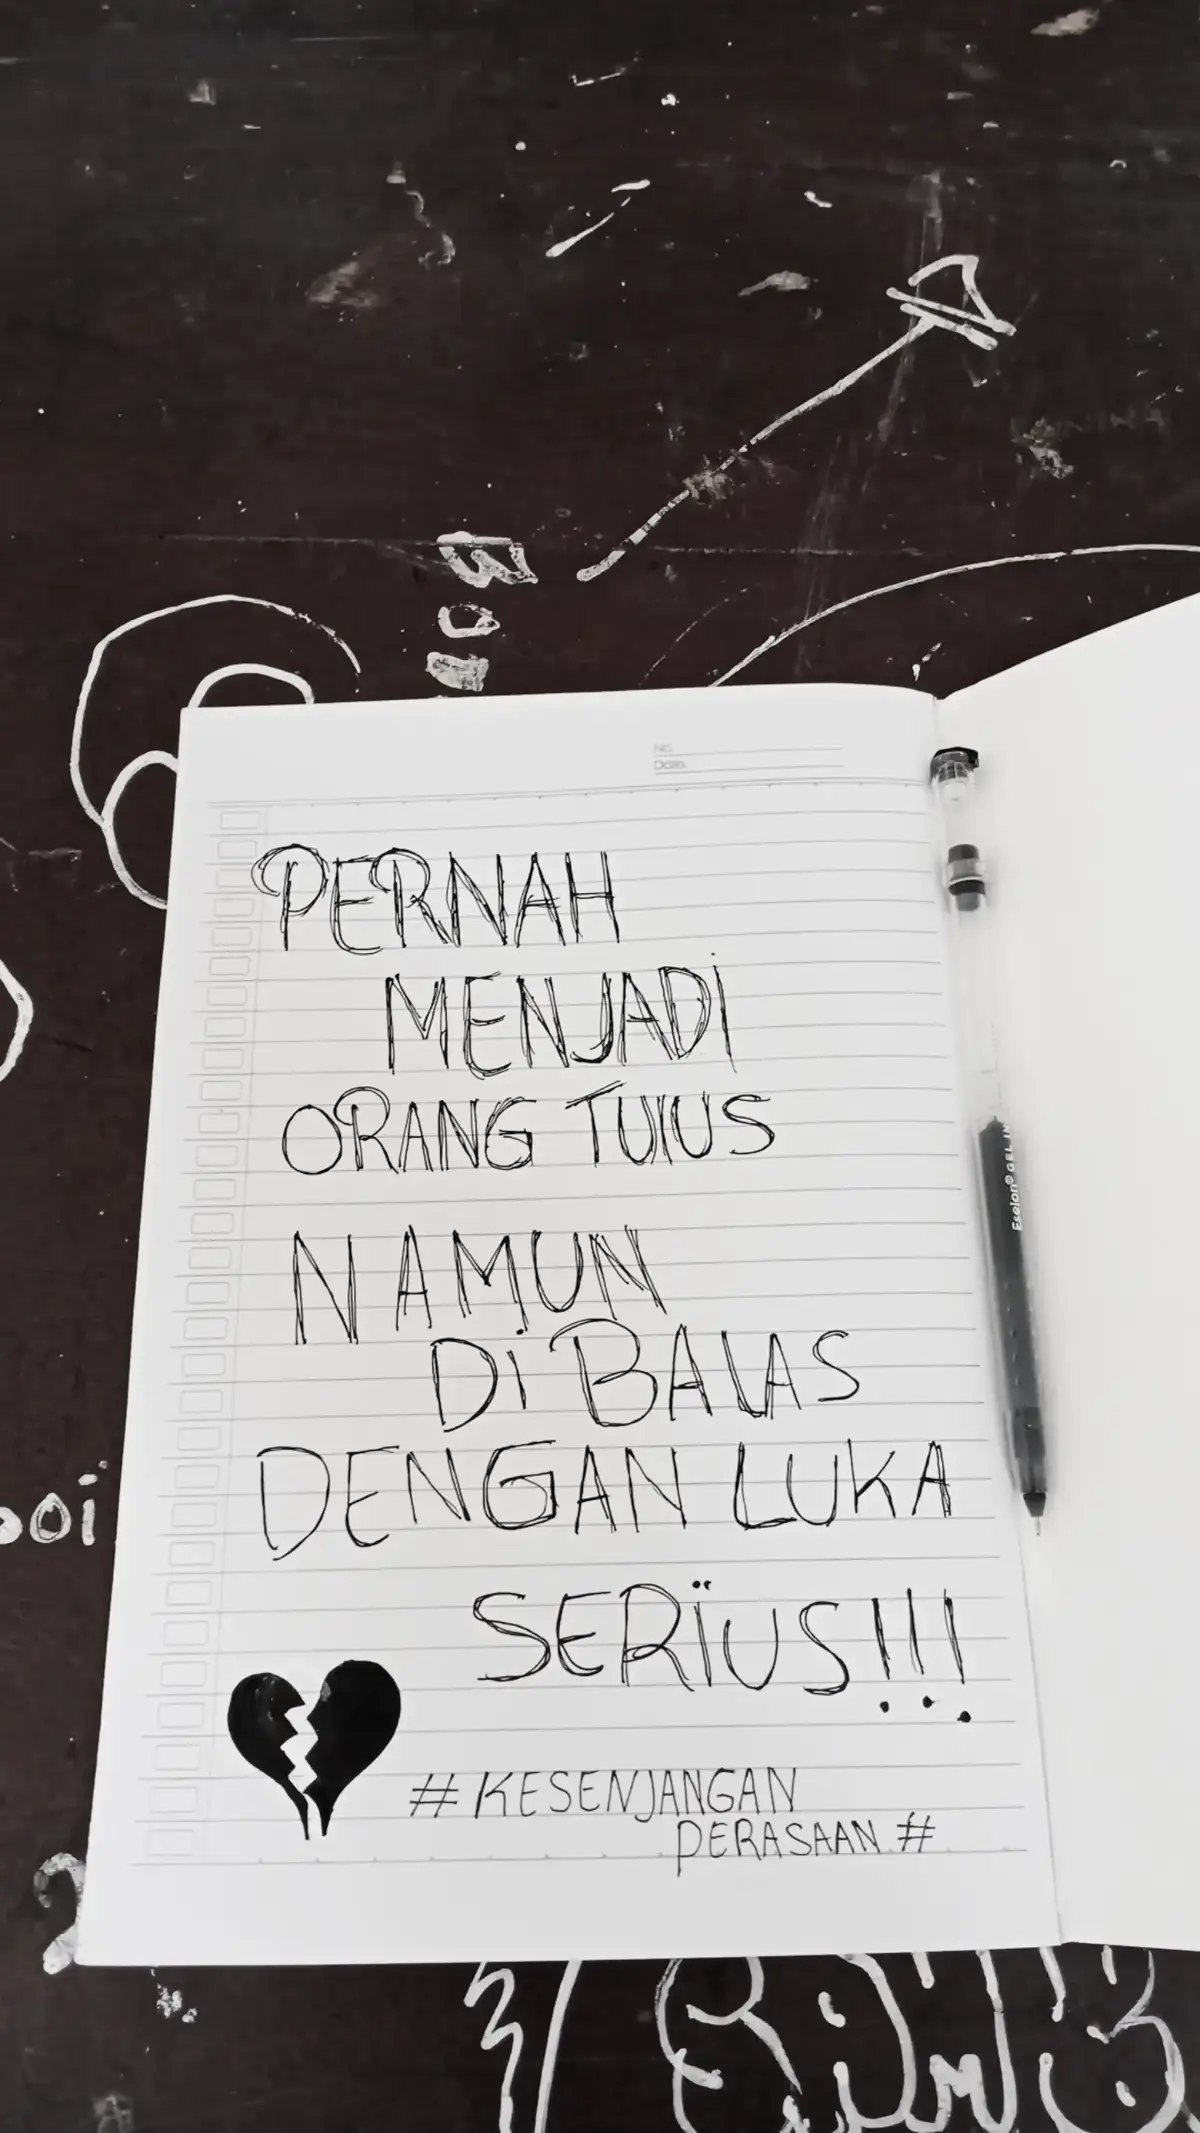 No.
Date.
PERNAH
MENJADi
ORANG TULUS
NAMUN
Di BALAS
DENGAN LUKA
SERÏUS!!!
#KESENJANGAN
PERASAAN #
Eselon® GEL IN